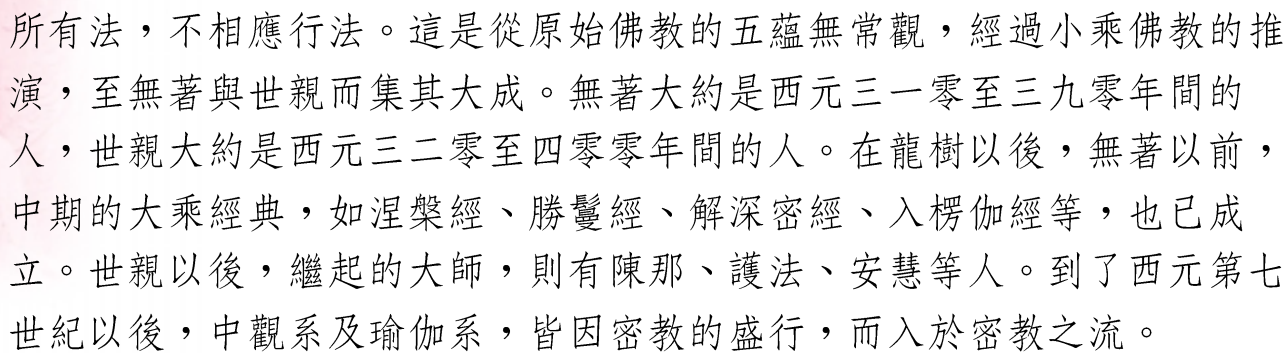 所有法，不相應行法。這是從原始佛教的五蘊無常觀，經過小乘佛教的推
演，至無著與世親而集其大成。無著大約是西元三一零至三九零年間的
人，世親大約是西元三二零至四零零年間的人。在龍樹以後，無著以前，
中期的大乘經典，如涅槃經、勝鬘經、解深密經、入楞伽經等，也已成
立。世親以後，繼起的大師，則有陳那、護法、安慧等人。到了西元第七
世紀以後，中觀系及瑜伽系，皆因密教的盛行，而入於密教之流。